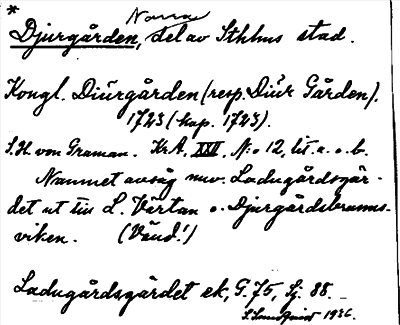 *
Norra
Djurgården, del av Sthlms stad.
Kongl. Diürgården (resp. Diür Gården).
1723 (kop. 1723).
S. H. von Graman. Kr A. XXII, N:o 12, lit. a. o. b.
Namnet avsåg nuv. Ladugårdsgär-
det ut till L. Värtan o. Djurgårdsbrunns-
viken. (Vänd!)
Ladugårdsgärdet ek, G. 75, Sj. 88.
1936.